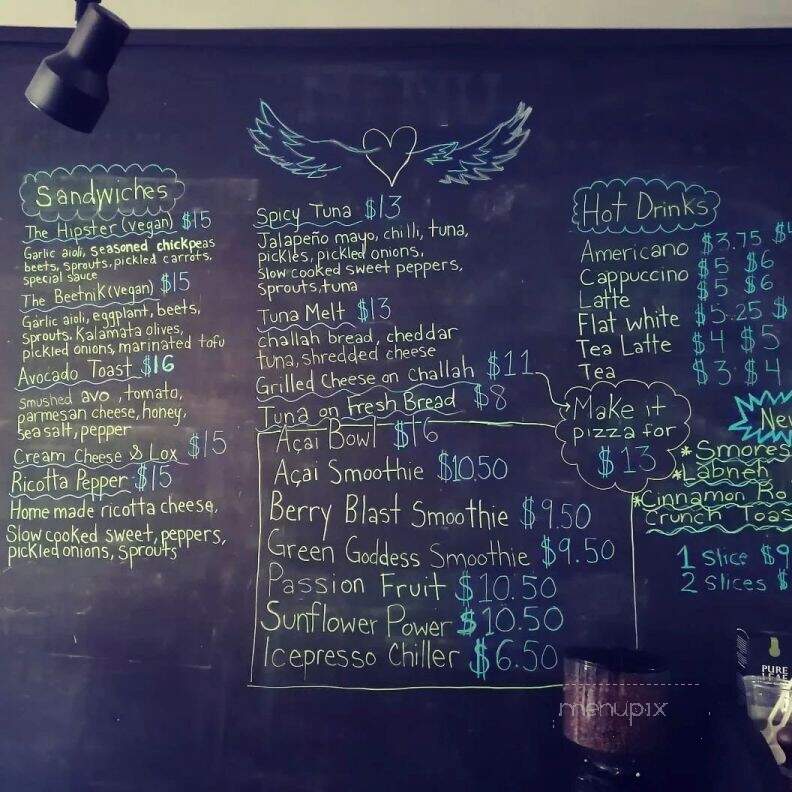 Sandwiches
The Hipster (vegan) $15
Garlic aioli, seasoned chickpeas
beets, sprouts, pickled carrots,
special sauce
The Beetnik (vegan) $15
Garlic aioli, eggplant, beets,
sprouts. Kalamata olives,
pickled onions, marinated tofu
Avocado Toast $16
smushed avo, tomato,
parmesan cheese, honey,
sea salt, pepper
Cream Cheese & Lox $15
Ricotta Pepper $15
Home made ricotta cheese,
Slow cooked sweet, peppers,
pickled onions, sprouts
Spicy Tuna $13
Jalapeño mayo, chilli, tuna,
pickles, pickled onions.
slow cooked sweet peppers,
sprouts, tuna
Tuna Melt $13
challah bread, cheddar
tuna, shredded cheese
Grilled Cheese on Challah $11
Tuna on Fresh Bread $8
Make it
pizza for
$13
Açai Bowl $16
Açai Smoothie $10.50
Berry Blast Smoothie $9.50
Green Goddess Smoothie $9.50
Passion Fruit $10.50
Sunflower Power $10.50
Icepresso Chiller $6.50
Hot Drinks
Americano $3.75 $4
Cappuccino $5 $6
Latte $5 $6
Flat white $5.25 $
Tea Latte $4 $5
Tea $3 $4
New
* Smores
* Labneh
* Cinnamon Ro
Crunch Toas
1 Slice $9
2 Slices $
PURE
LEAF
menupix